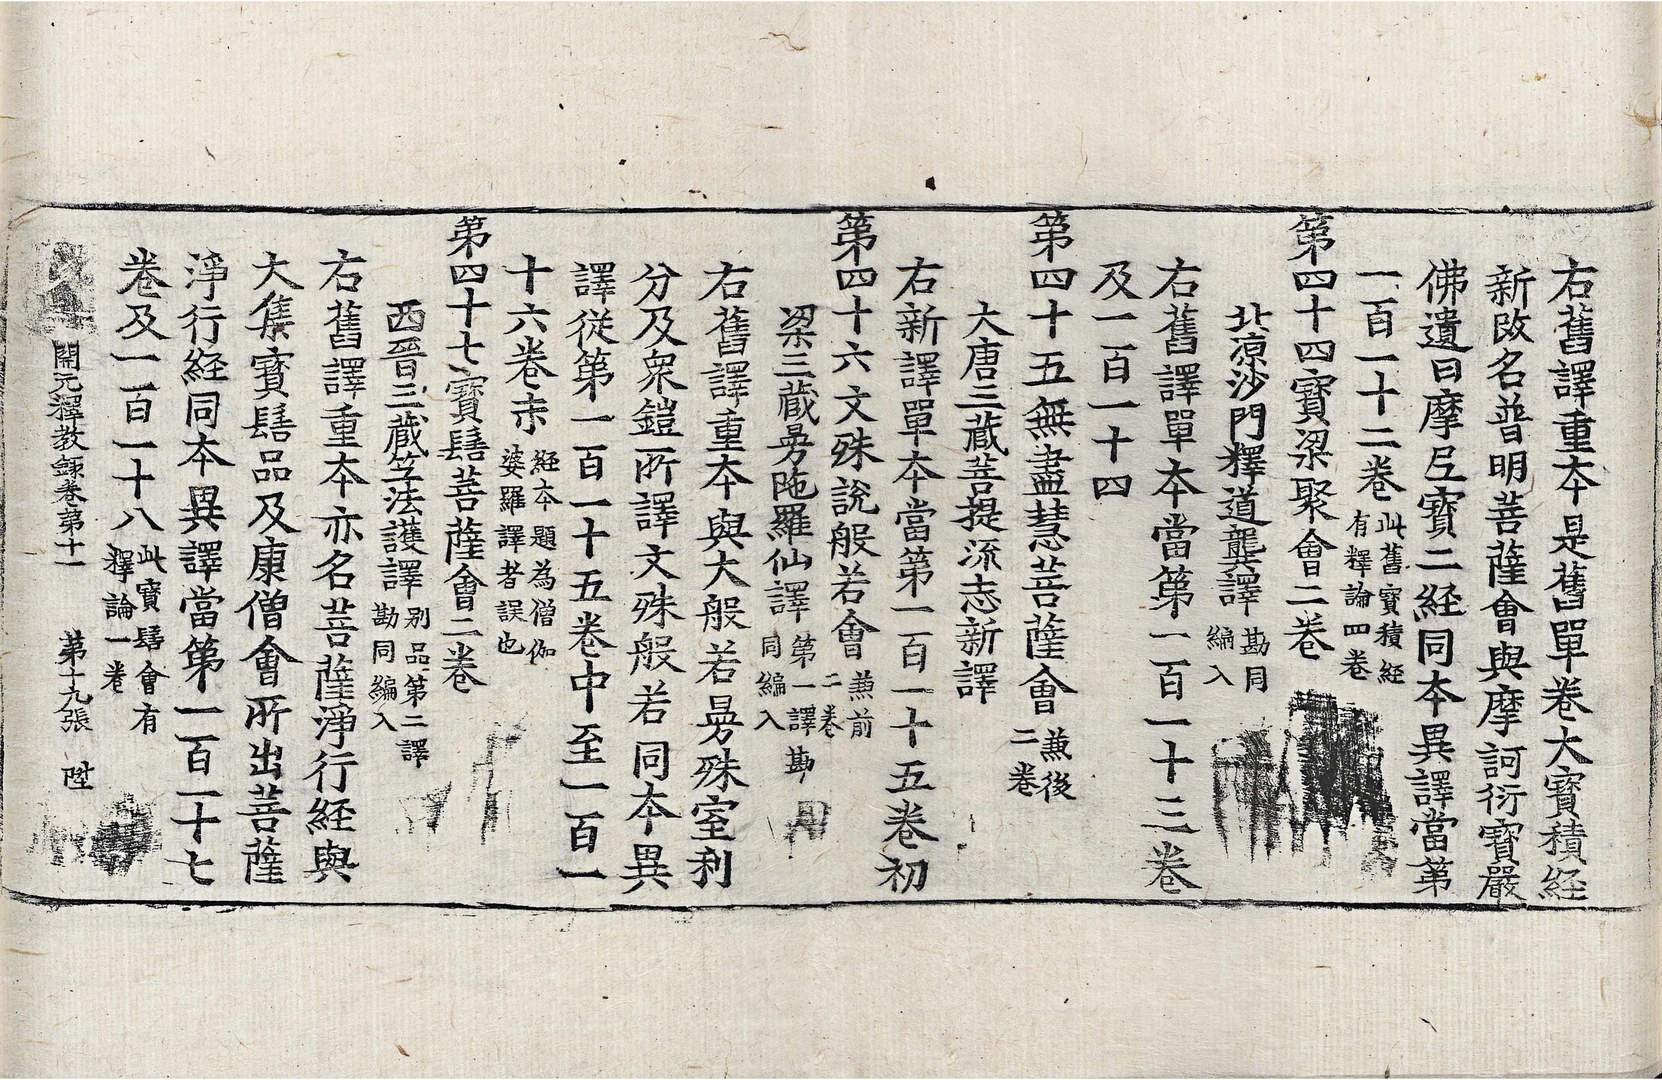 右舊譯重本是舊單卷大寶積経
新改名普明菩薩會與摩訶衍寶嚴
佛遺曰摩尼寶二経同本異譯當第
一百一十二卷此舊寶積経有釋論四卷
第四十四寶梁聚會二卷
北涼沙門釋道龔譯勘同編入
右舊譯單本當第一百一十三卷
及一百一十四
第四十五無盡慧菩薩會蒹後二卷
大唐三藏菩提流志新譯
右新譯單本當第一百一十五卷初
第四十六文殊說般若會蒹前二卷
梁三藏曼陁羅仙譯第一譯勘同編入
右舊譯重本與大般若曼殊室利
分及衆鎧所譯文殊般若同本異
譯從第一百一十五卷中至一百一
十六卷末経本題為僧伽婆羅譯者誤也
第四十七寶髻菩薩會二卷
西晉三藏竺法護譯别品第二譯勘同編入
右舊譯重本亦名菩薩淨行経與
大集寶髻品及康僧會所出菩薩
淨行経同本異譯當第一百一十七
卷及一百一十八此寶髻會有釋論一卷
開元釋教録卷第十一 第十九張 陞